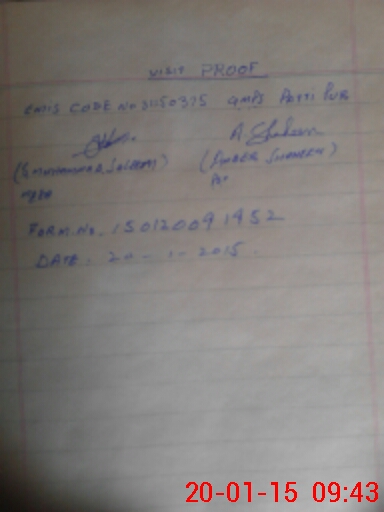 VISIT PROOF
EMIS CODE No 31150375 GMPS PATTI PUR
A. Shaheen
(S MUHAMMAD SALEEM) (AMBER SHAHEEN)
FORM. No. 150120091952
DATE. 20-1-2015.
20-01-15 09:43